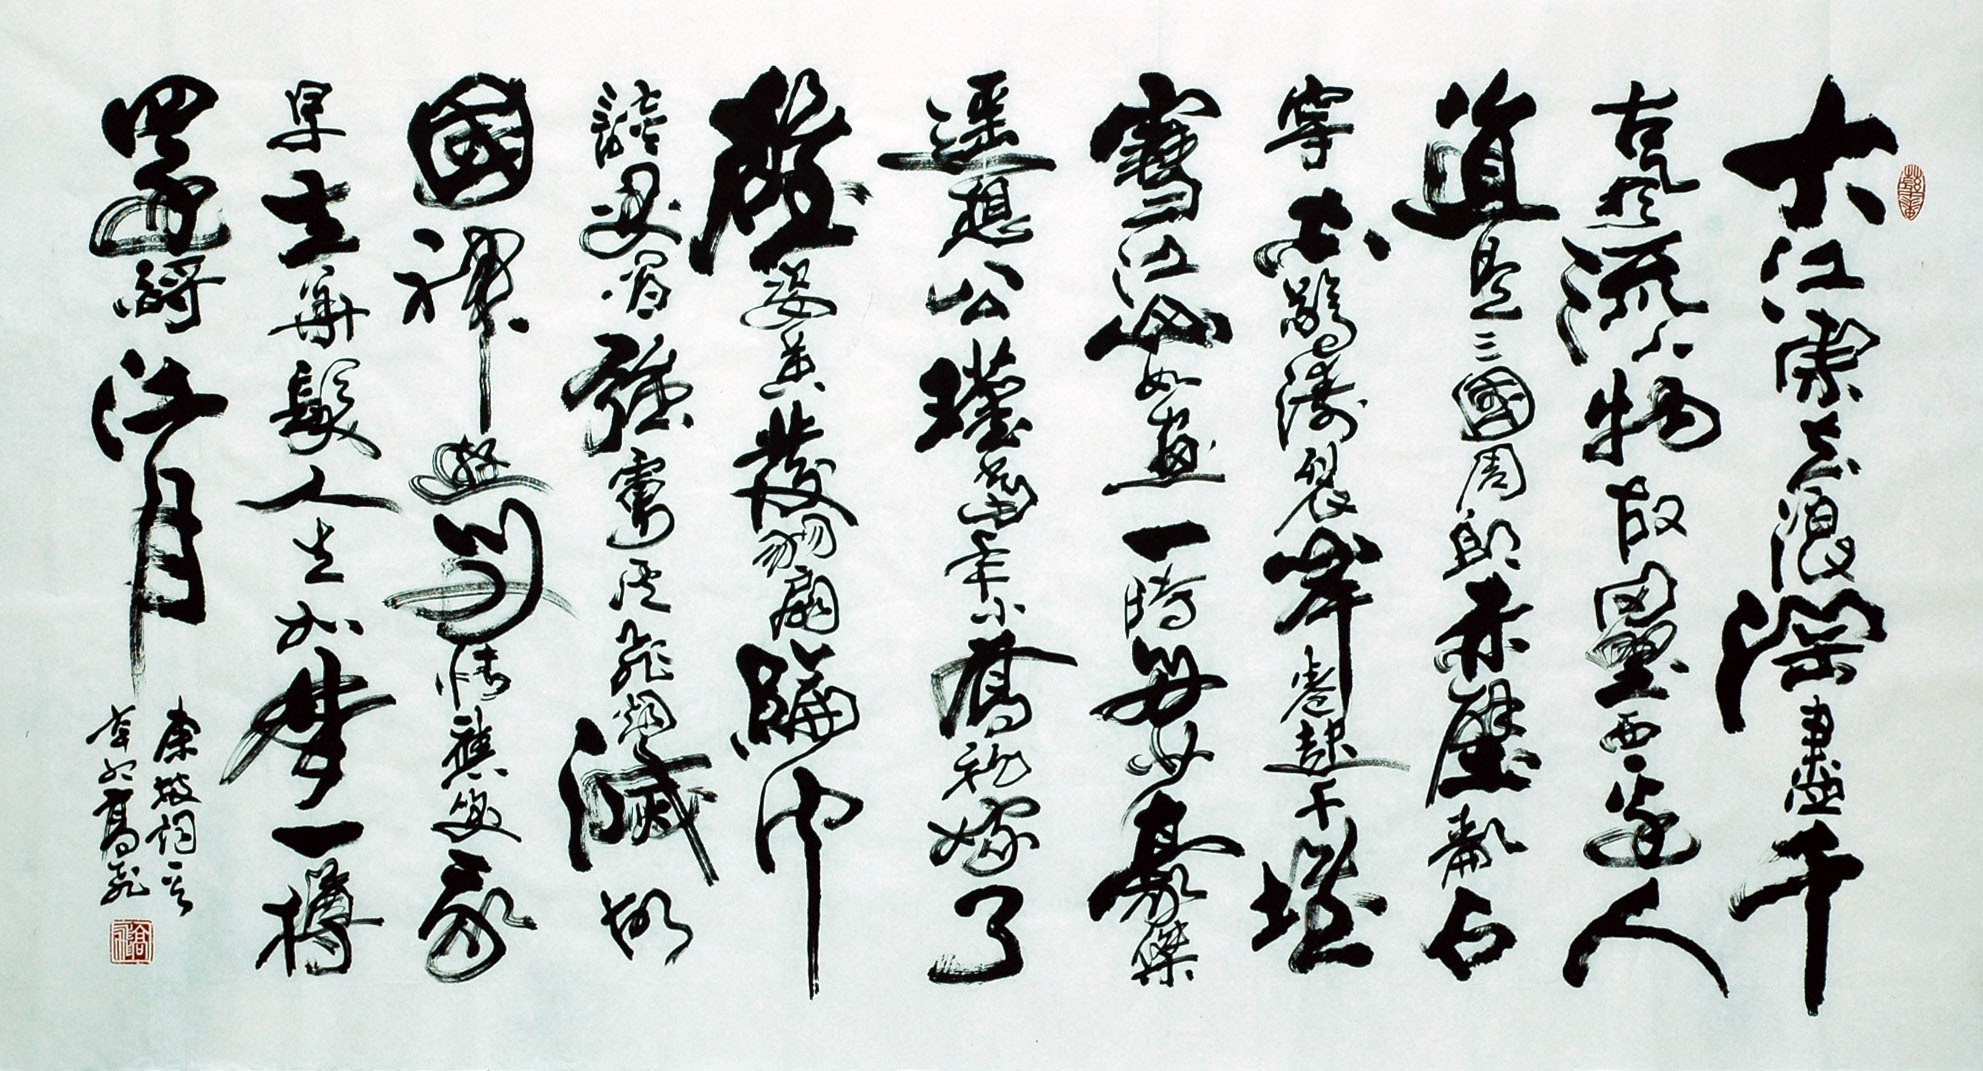 大江東去浪淘盡千
古風流人物故壘西邊人
道是三國周郎赤壁亂石
穿空驚濤裂岸卷起千堆
雪江山如畫一時多少豪傑
遥想公瑾當年小喬初嫁了
雄姿英發羽扇綸巾
談笑間強虜灰飛煙滅故
國神遊多情應笑我
早生華髮人生如夢一樽
還酹江月
東坡詞一首
高飛